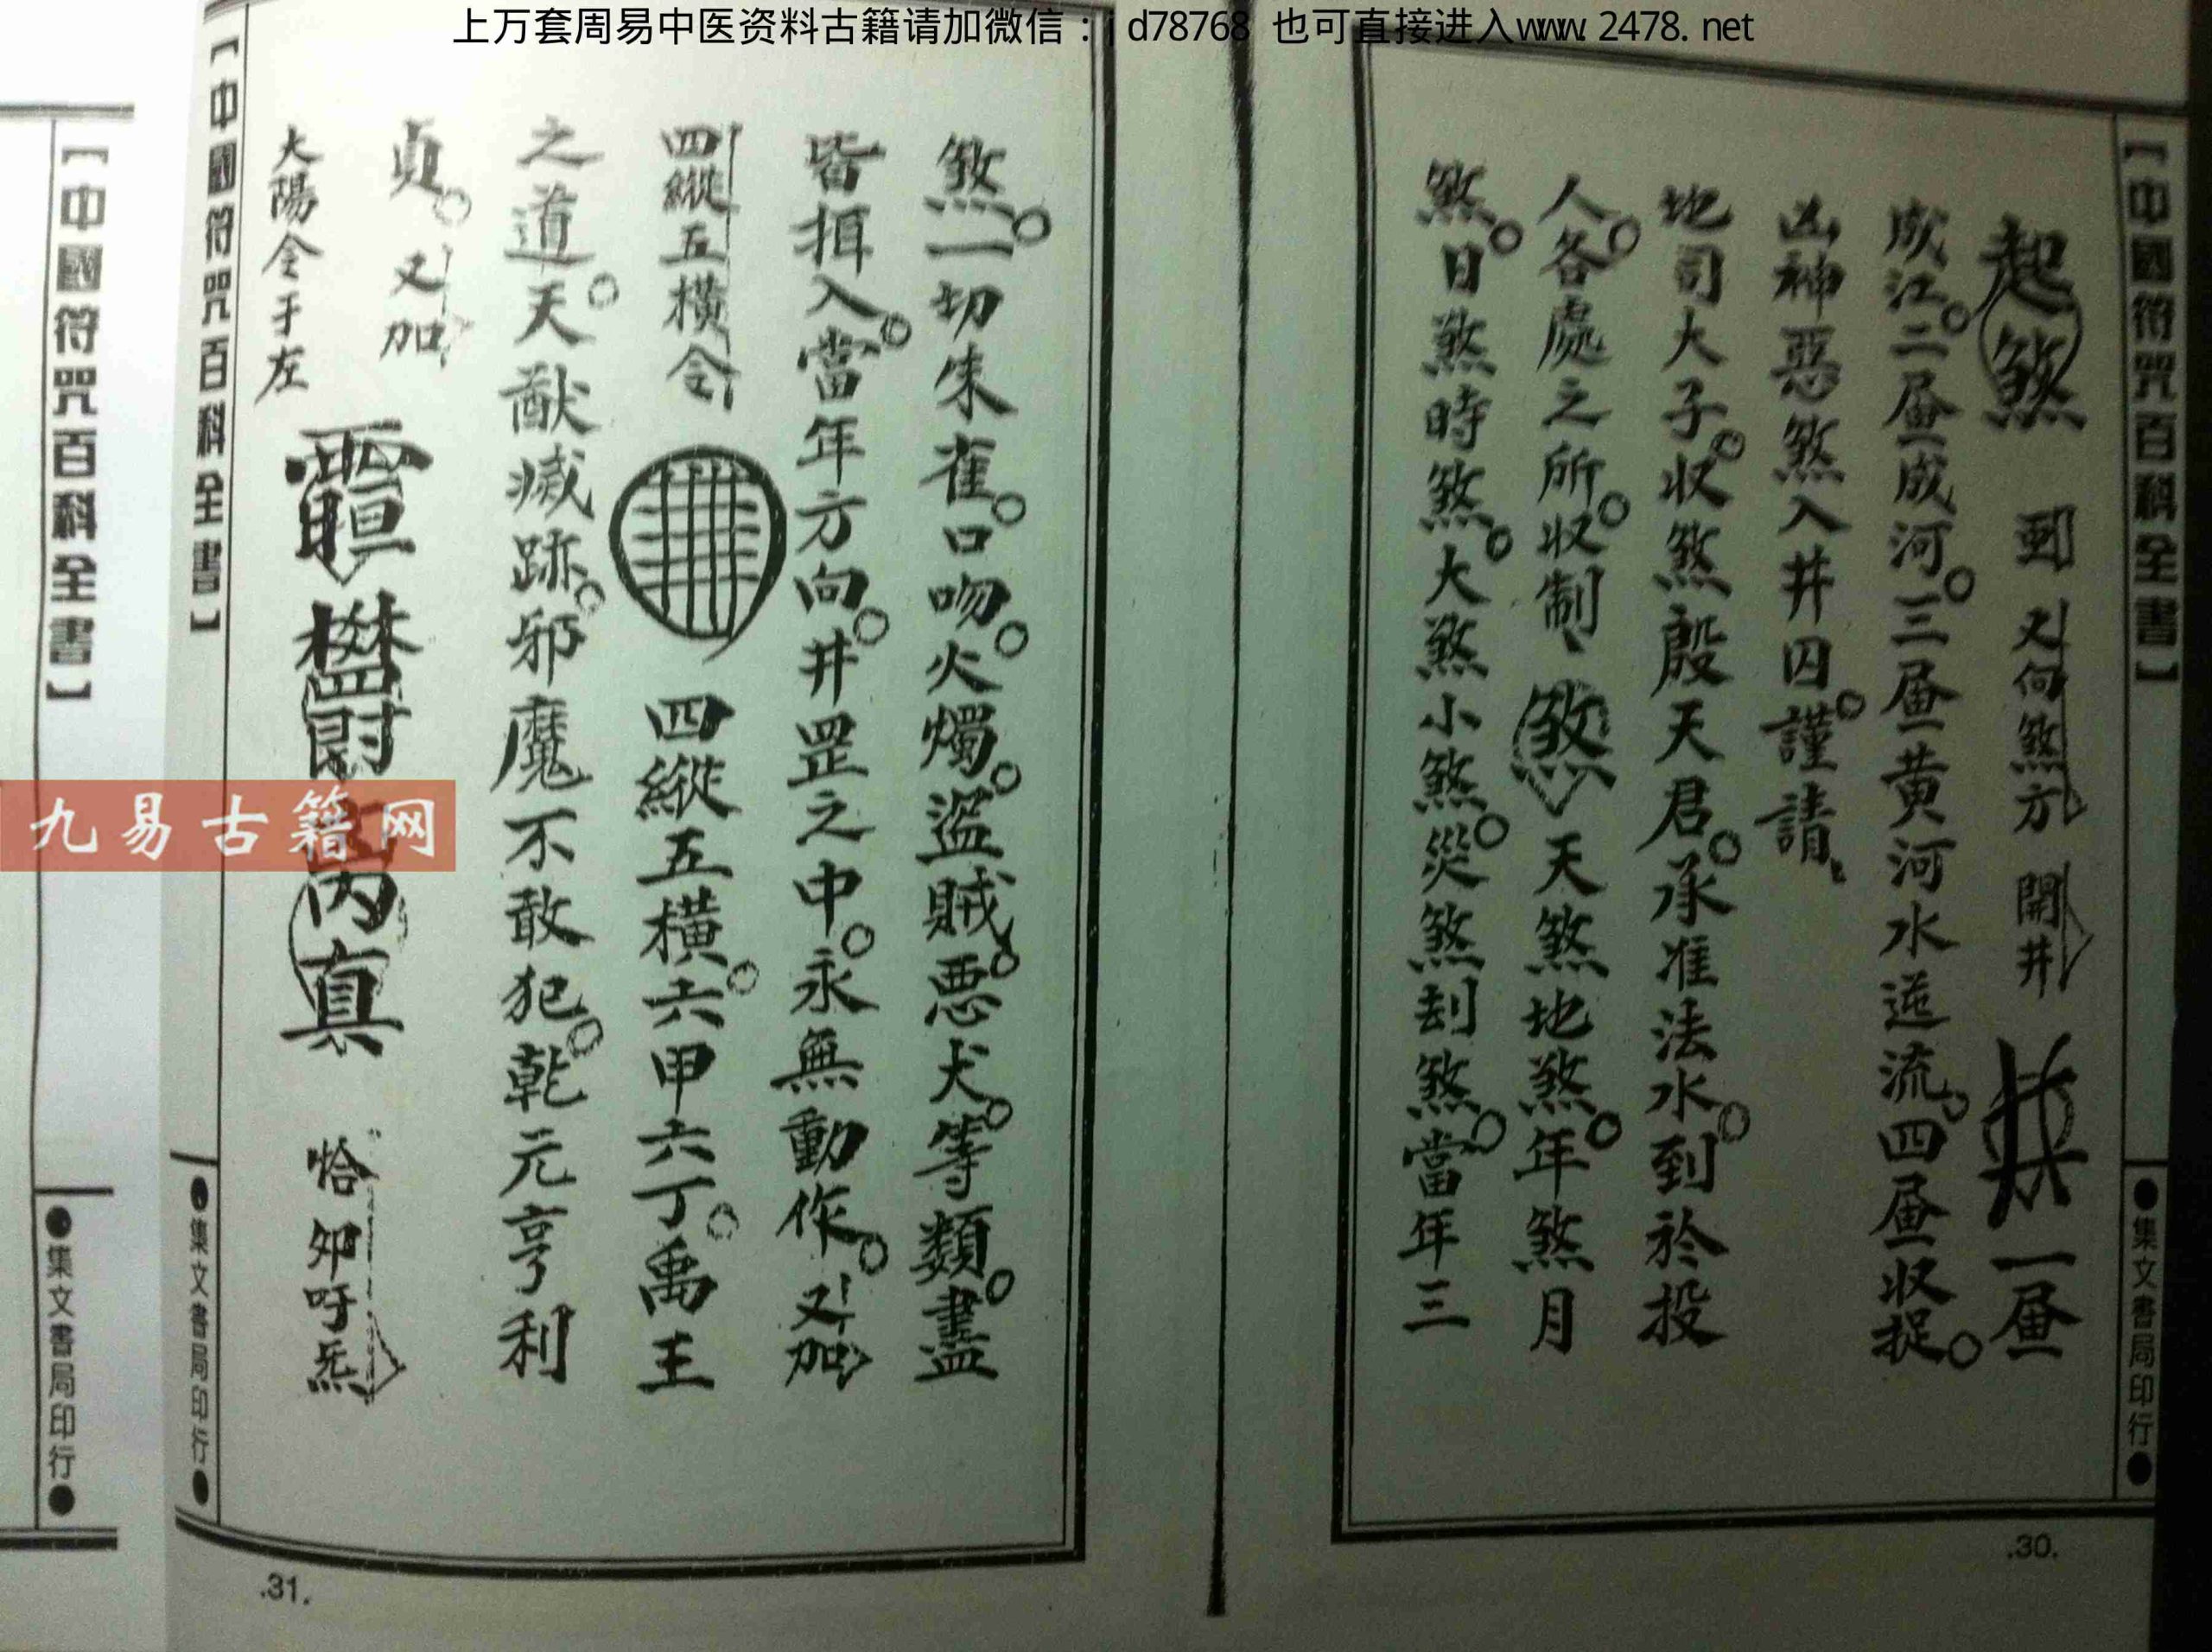 上万套周易中医资料古籍请加微信：id78768 也可直接进入www.2478.net
【中國符咒百科全書】
●集文書局印行●
起煞 到 又向煞方 開井 井 一畫
成江。二畫成河。三畫黃河水逆流。四畫收捉。
凶神惡煞入井囚。謹請、
地司大子。收煞殷天君。承准法水。到於投
人。各處之所。收制、煞 天煞地煞。年煞月
煞。日煞時煞。大煞小煞。災煞刦煞。當年三
.30.
煞。一切朱雀。口吻。火燭。盜賊。悪犬。等類。盡
皆揖入。當年方向。井罡之中。永無動作。又加
四縱五橫令 四縱五橫。六甲六丁。禹王
之道。天猷滅跡。邪魔不敢犯。乾元亨利
貞。又加
大陽令于左 真
【中國符咒百科全書】
●集文書局印行●
.31.
【中國符咒百科全書】
●集文書局印行●
九易古籍网